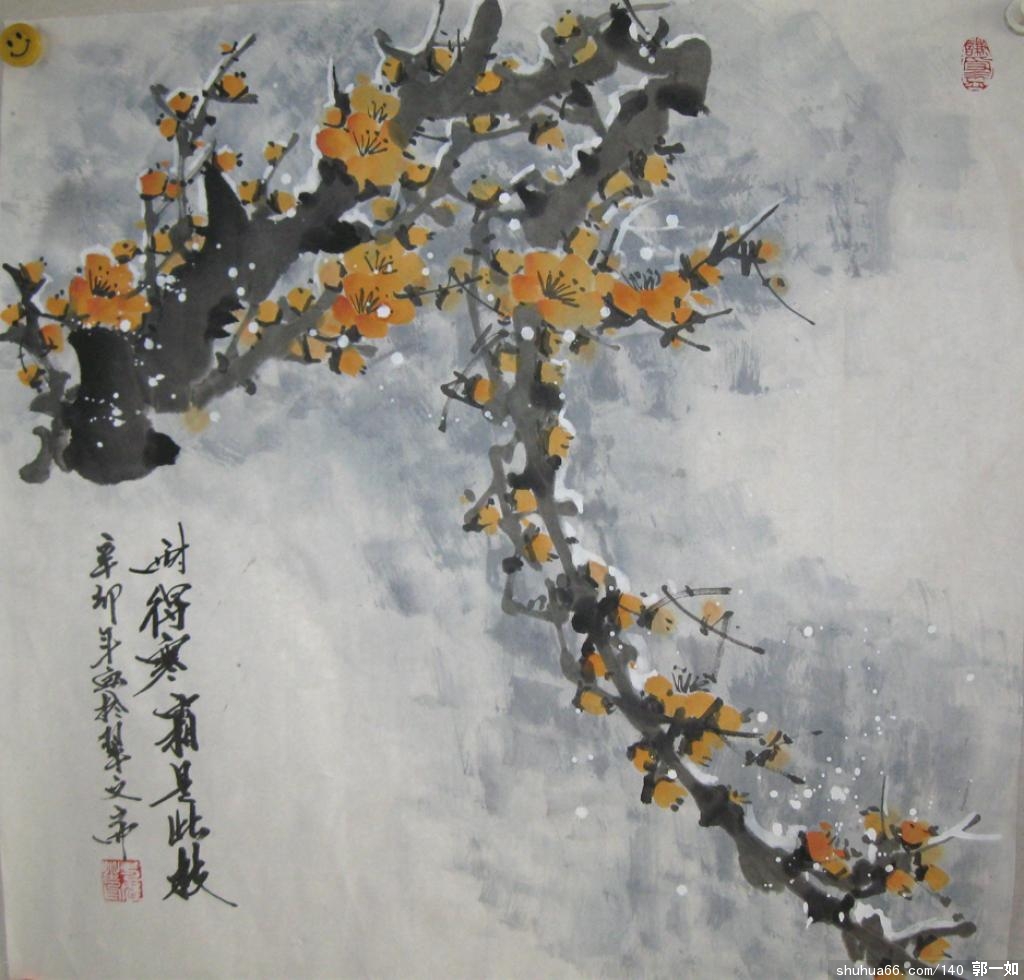 耐得寒霜是此枝
辛卯年画於翠文斋
shuhua66.com/140 郭一如